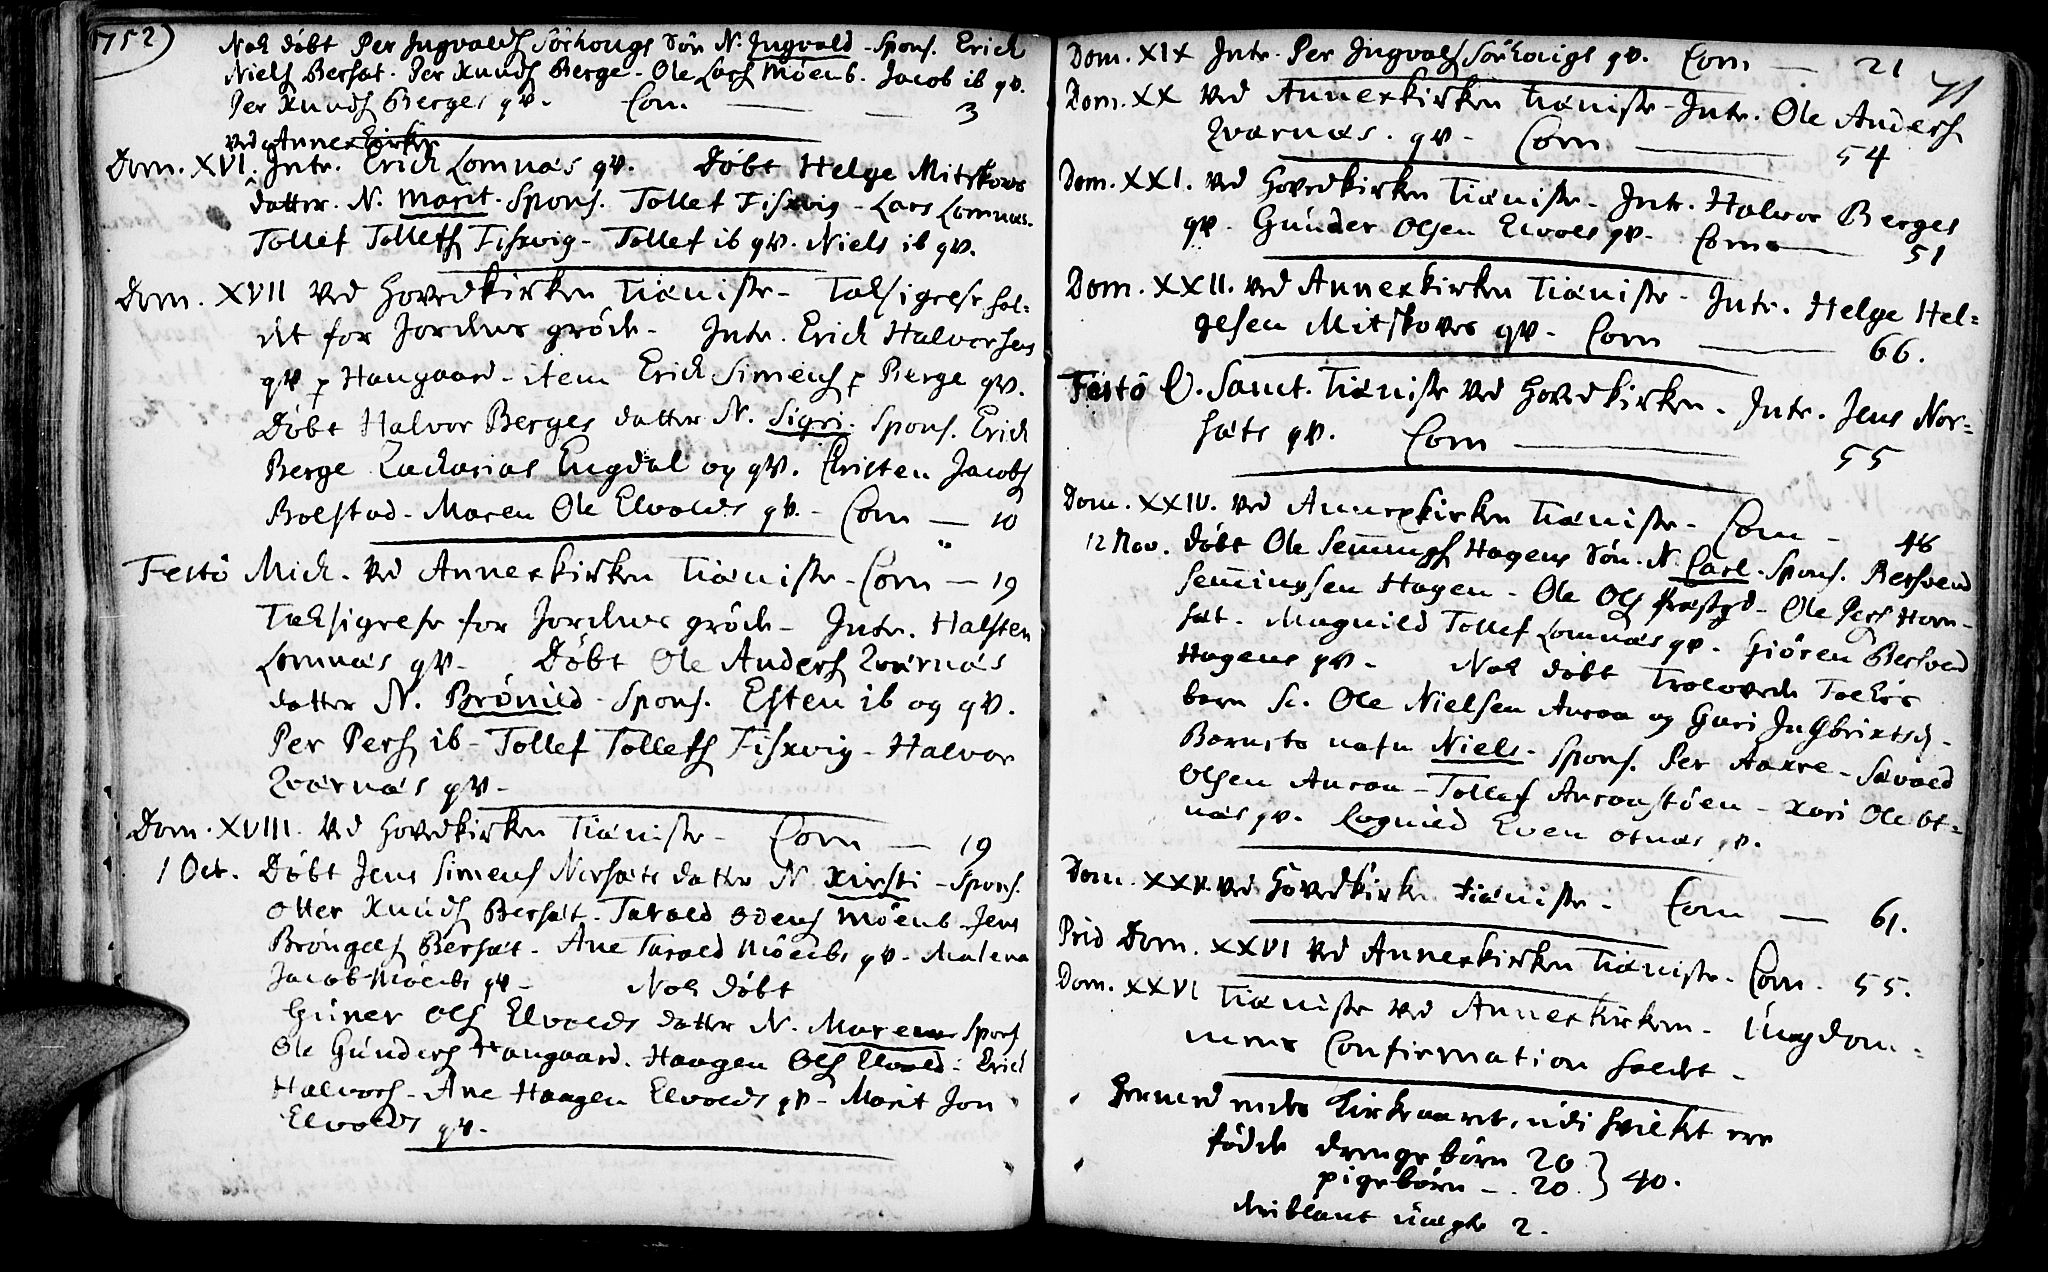 1752)
Nok døbt Per Ingvalds Sørhougs Søn N. Ingvald - Spons. Erich
Niels Bersæt. Per Knuds Berge - Ole Lars Möenb. Jacob ib qv.
Per Knuds Berges qv. Com — 3
ved AnnexKirken
Dom. XVI. Intr. Erich Lomnæs qv. Døbt Helge Mitskows
datter. N. Marit. Spons. Tollef Fiskvig - Lars Lomnæs.
Tollef Tollefs Fiskvig - Tollef ib qv. Niels ib qv.
Dom. XVII ved Hovedkirken Tieniste - Taksigelse hol=
dt for Jordens grøde - Intr. Erich Halvorsens
qv p Haugaard - item Erich Simens p Berge qv.
Døbt Halvor Berges datter N. Sigri. Spons. Erich
Berge Zacharias Engdal og qv. Christen Jacobs
Bolstad - Maren Ole Elvolds qv. - Com — 10
Festo Mich. ved Annexkirken Tieniste - Com — 19
Taksigelse for Jordens grøde - Intr. Halsten
Lomnæs qv - Døbt Ole Anders Kværnæs
datter N. Brønild - Spons. Esten ib og qv.
Per Pers ib - Tollef Tollefs Fiskvig - Halvor
Kværnæs qv -
Dom. XVIII. ved Hovedkirken Tieniste - Com — 19
1 Oct. Døbt Jens Simens Norsæts datter N Kirsti - Spons.
Otter Knuds Bersæt - Tarald Odens Möenb - Jens
Brøngels Bersæt - Ane Tarald Möenbs qv - Malena
Jacob Möenbs qv - Nok døbt
Güner Ols Elvolds datter N. Maren Spons
Ole Gunders Haugaard. Haagen Ols Elvold - Erich
Halvors - Ane Haagen Elvolds qv - Marit Jon
Elvolds qv -
Dom. XIX Intr. Per Ingvals Sørhougs qv. Com — 21
71
Dom. XX ved Annexkirken Tieniste - Intr. Ole Anders
Kværnæs. qv - Com — 54
Dom. XXI. ved Hovedkirken Tieniste - Intr. Halvor Berges
qv - Gunder Olsen Elvols qv - Com — 51
Dom. XXII. ved Annexkirken Tieniste - Intr. Helge Hel=
gesen Mitskoves qv - Com — 66.
Festo O. Sanct. Tieniste ved Hovedkirken - Intr. Jens Nor=
sæts qv. Com — 55
Dom. XXIV. ved Annexkirken Tieniste - Com - 46
12 Nov. døbt Ole Semmings Hagens Søn. N. Carl - Spons. Bersvend
Semmingsen Hagen - Ole Ols Præstgd - Ole Pers Horn-
sæt. Magnild Tollef Lomnæs qv. Giören Bersvend
Hagens qv - Nok døbt trolovede Folkis
barn Sc. Ole Nielsen Auraa og Guri Ingbrixtsd -
Barnets nafn Niels - Spons. Per Aakre - Sævald
Olsen Auraa - Tollef Auraastöen - Kari Ole Ot=
næs qv. Ragnild Even Otnæs qv.
Dom. XXV. ved Hovedkirke Tieniste - Com — 61.
Prid Dom. XXVI ved Annexkirken Tieniste - Com - 55.
Dom. XXVI Tieniste ved Annexkirken - Ungdom=
mens Confirmation holdt -
Hermed endes Kirkeaaret, udi hvilket ere
fødde drengebørn 20 } 40.
pigebørn - 20
deriblant uægte 2.